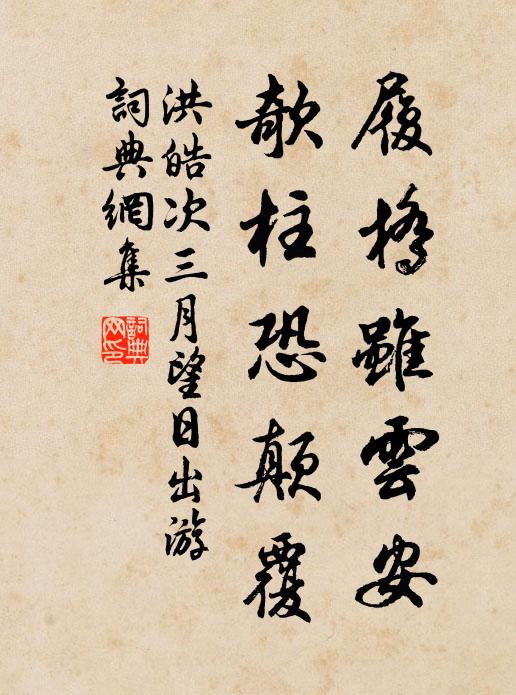 履橋雖雲安
欹柱恐顛覆
洪皓次三月望日出游
詞典網集
詞典網印